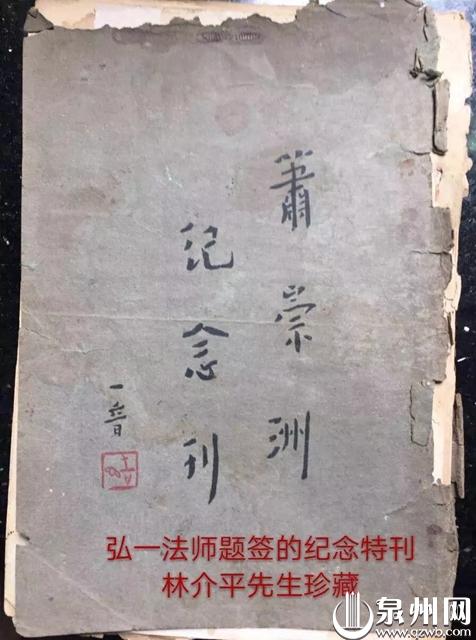 蕭崇洲
纪念刊
一音
弘一法师题签的纪念特刊
林介平先生珍藏
泉州网
www.qzwb.com